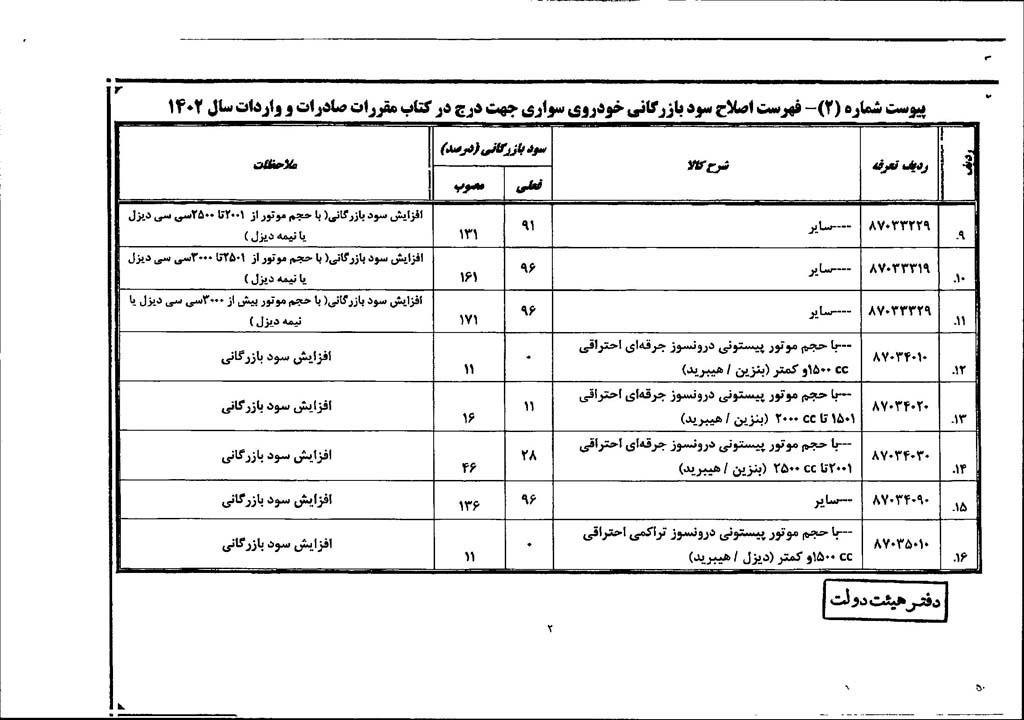 پیوست شماره (۲)- فهرست اصلاح سود بازرگانی خودروی سواری جهت درج در کتاب مقررات صادرات و واردات سال ۱۴۰۲
ردیف ردیف تعرفه شرح کالا سود بازرگانی (درصد) ملاحظات
فعلی مصوب
۹. ۸۷۰۳۳۲۲۹ ----سایر ۹۱ ۱۳۱ افزایش سود بازرگانی( با حجم موتور از ۲۰۰۱تا ۲۵۰۰سی سی دیزل
یا نیمه دیزل )
۱۰. ۸۷۰۳۳۳۱۹ ----سایر ۹۶ ۱۶۱ افزایش سود بازرگانی( با حجم موتور از ۲۵۰۱تا ۳۰۰۰سی سی دیزل
یا نیمه دیزل )
۱۱. ۸۷۰۳۳۳۲۹ ----سایر ۹۶ ۱۷۱ افزایش سود بازرگانی( با حجم موتور بیش از ۳۰۰۰سی سی دیزل یا
نیمه دیزل )
۱۲. ۸۷۰۳۴۰۱۰ ---با حجم موتور پیستونی درونسوز جرقه‌ای احتراقی
۱۵۰۰ cc و کمتر (بنزین / هیبرید) ۰ ۱۱ افزایش سود بازرگانی
۱۳. ۸۷۰۳۴۰۲۰ ---با حجم موتور پیستونی درونسوز جرقه‌ای احتراقی
۱۵۰۱ تا ۲۰۰۰ cc (بنزین / هیبرید) ۱۱ ۱۶ افزایش سود بازرگانی
۱۴. ۸۷۰۳۴۰۳۰ ---با حجم موتور پیستونی درونسوز جرقه‌ای احتراقی
۲۰۰۱تا ۲۵۰۰ cc (بنزین / هیبرید) ۲۸ ۴۶ افزایش سود بازرگانی
۱۵. ۸۷۰۳۴۰۹۰ ---سایر ۹۶ ۱۳۶ افزایش سود بازرگانی
۱۶. ۸۷۰۳۵۰۱۰ ---با حجم موتور پیستونی درونسوز تراکمی احتراقی
۱۵۰۰ cc و کمتر (دیزل / هیبرید) ۰ ۱۱ افزایش سود بازرگانی
دفتر هیئت دولت
۲